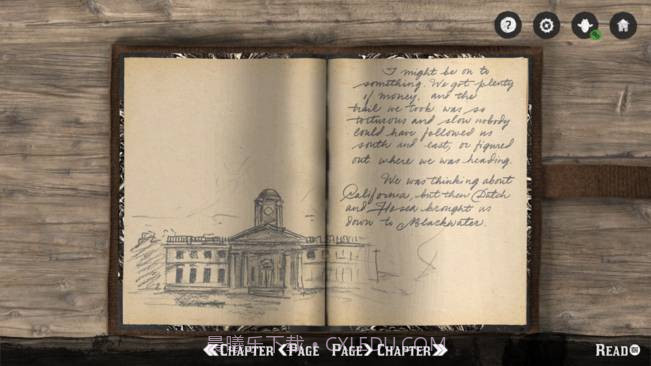 I might be on to
something. We got plenty
of money, and the
trail we took was so
torturous and slow nobody
could have followed us
south and east, or figured
out where we was heading.
We was thinking about
California, but then Dutch
and Hosea brought us
down to Blackwater.
晨曦乐下载 · CXLEDU.COM
CHAPTER PAGE PAGE CHAPTER READ